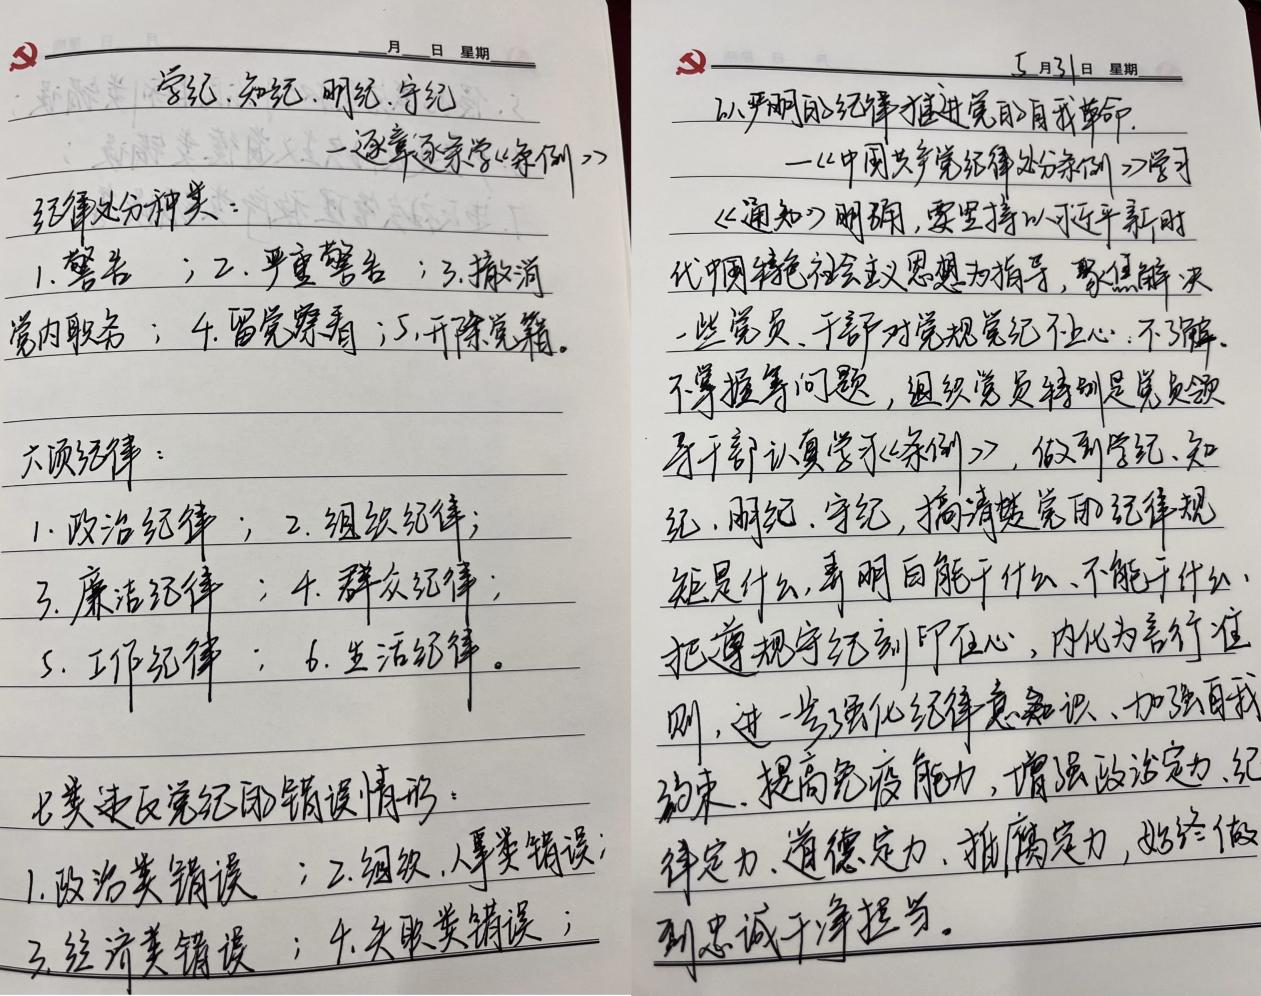 月 日 星期
学纪、知纪、明纪、守纪
—逐章逐条学《条例》
纪律处分种类：
1.警告 ；2.严重警告 ；3.撤消
党内职务 ；4.留党察看 ；5.开除党籍。
六项纪律：
1.政治纪律 ；2.组织纪律；
3.廉洁纪律 ；4.群众纪律；
5.工作纪律 ；6.生活纪律。
七类违反党纪的错误情形：
1.政治类错误 ；2.组织、人事类错误；
3.经济类错误 ；4.失职类错误；
5月31日 星期
以严明的纪律推进党的自我革命.
—《中国共产党纪律处分条例》学习
《通知》明确，要坚持以习近平新时
代中国特色社会主义思想为指导，聚焦解决
一些党员、干部对党规党纪不上心、不了解、
不掌握等问题，组织党员特别是党员领
导干部认真学习《条例》，做到学纪、知
纪、明纪、守纪，搞清楚党的纪律规
矩是什么，弄明白能干什么、不能干什么，
把遵规守纪刻印在心，内化为言行准
则，进一步强化纪律意识、加强自我
约束、提高免疫能力，增强政治定力、纪
律定力、道德定力、拒腐定力，始终做
到忠诚干净担当。